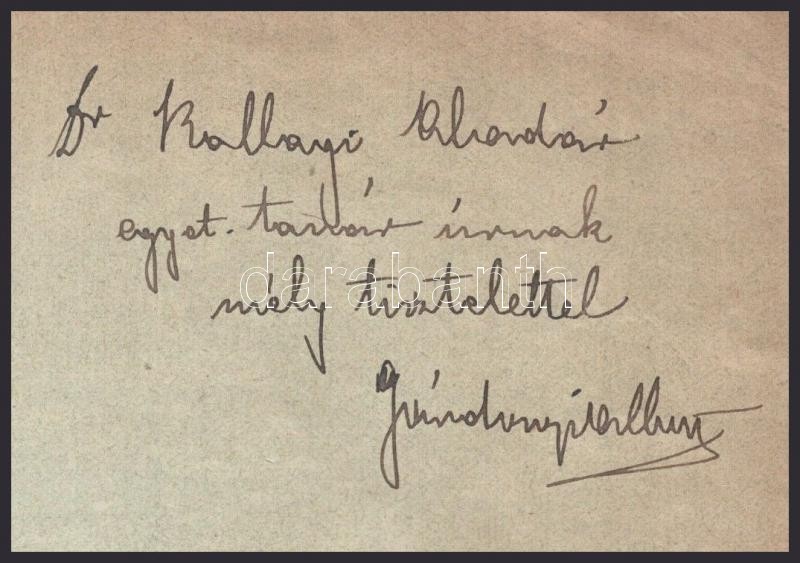 Dr Ballagi Aladár
egyet. tanár úrnak
mély tisztelettel
Gárdonyi Albert
darabanth